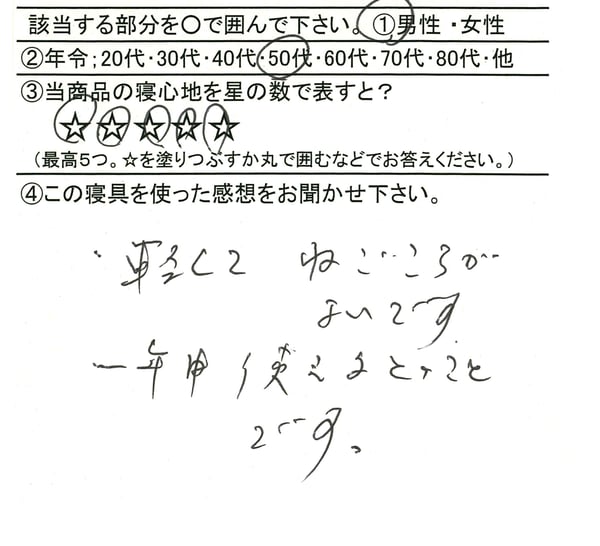 該当する部分を〇で囲んで下さい。①男性・女性
②年令;20代・30代・40代・50代・60代・70代・80代・他
③当商品の寝心地を星の数で表すと?
☆☆☆☆☆
(最高5つ。☆を塗りつぶすか丸で囲むなどでお答えください。)
④この寝具を使った感想をお聞かせ下さい。
・軽くて ねごこちが
よいです
一年中使えるとのこと
です。